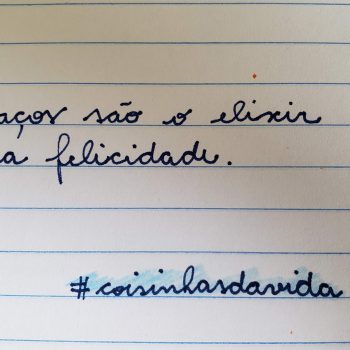 aços são o elixir
a felicidade.
#coisinhasdavida